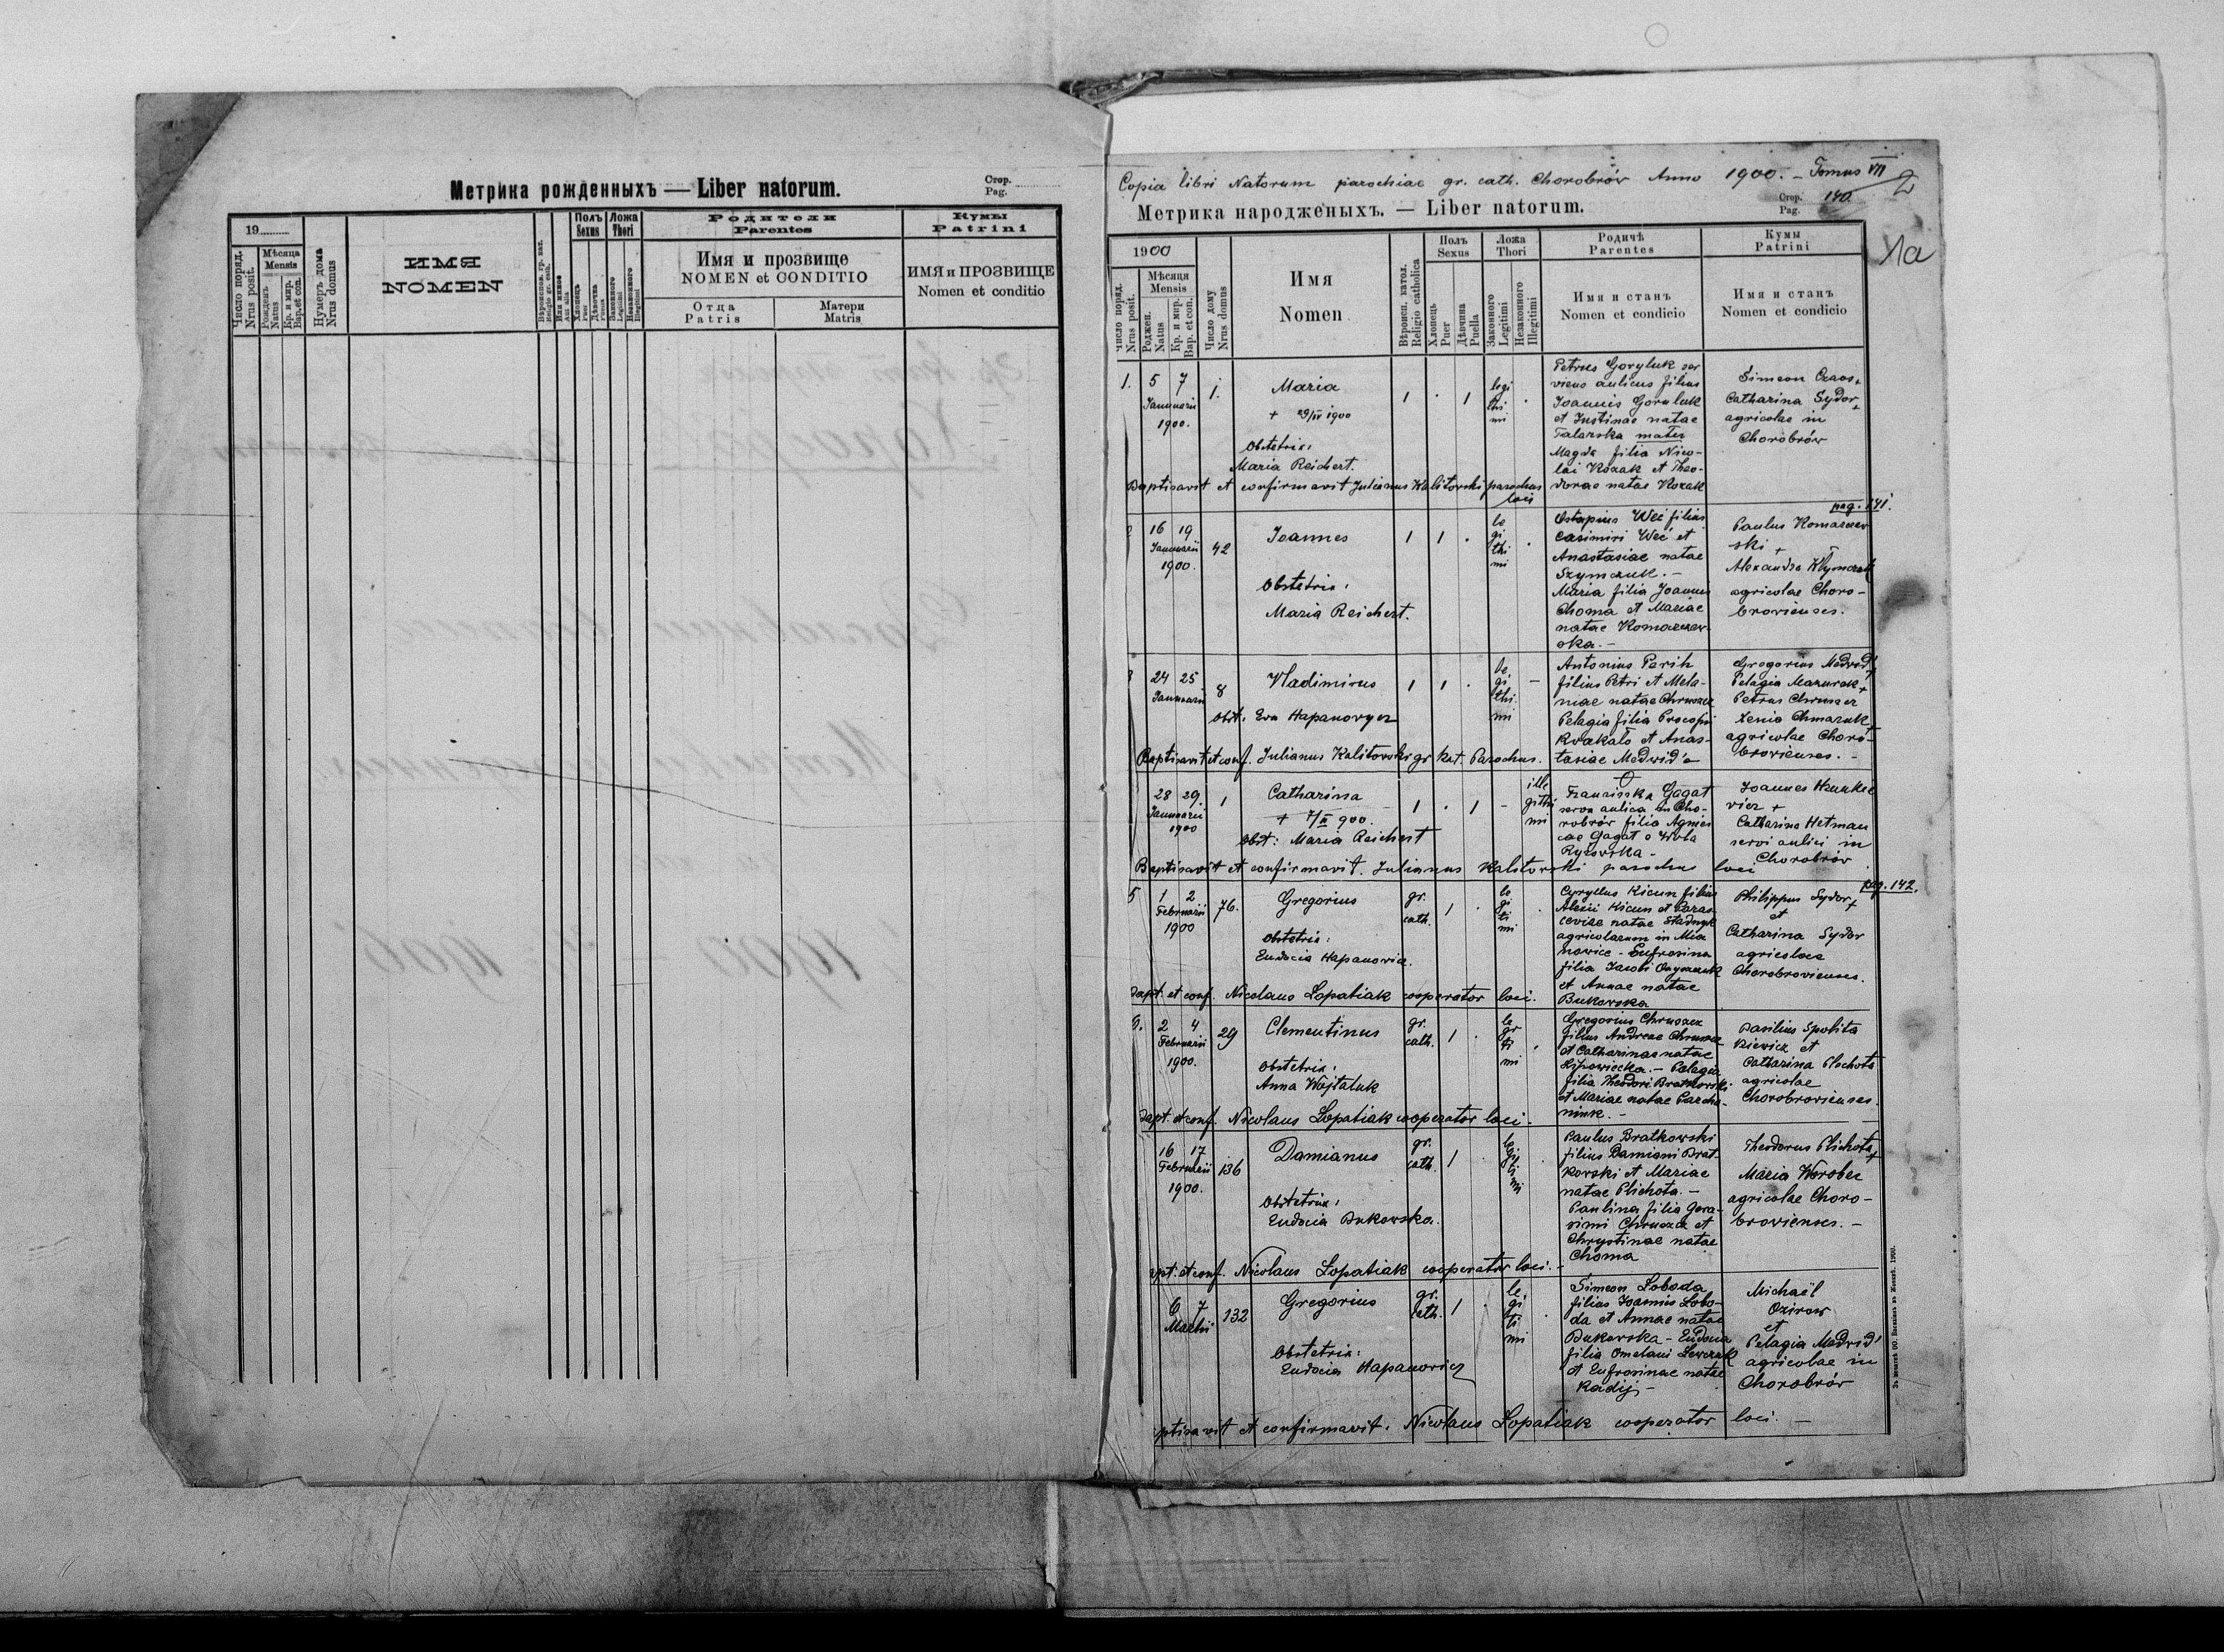 Метрика рожденныхъ — Liber natorum.
Стор.
Pag.
19
Число поряд.
Nrus posit.
Мѣсяца
Mensis
Рожденъ
Natus
Кр. и мир.
Bap. et con.
Нумеръ дома
Nrus domus
ИМЯ
NOMEN
Полъ
Sexus
Ложа
Thori
Родители
Parentes
Имя и прозвище
NOMEN et CONDITIO
Отца
Patris
Матери
Matris
Кумы
Patrini
ИМЯ и ПРОЗВИЩЕ
Nomen et conditio
Copia libri Natorum parochiae gr. cath. Chorobrów Anno 1900. — Tomus VII
2
Стор.
Pag. 140
Метрика народженыхъ. — Liber natorum.
1а
1900
Число поряд.
Nrus posit.
Мѣсяця
Mensis
Роджен.
Natus
Кр. и мир.
Bap. et con.
Число дому
Nrus domus
Имя
Nomen
Вѣроисп. катол.
Religio catholica
Полъ
Sexus
Хлопець
Puer
Дѣвчина
Puella
Ложа
Thori
Законного
Legitimi
Незаконного
Illegitimi
Родичѣ
Parentes
Имя и станъ
Nomen et condicio
Кумы
Patrini
Имя и станъ
Nomen et condicio
1. 5 7
Januarii
1900.
1.
Maria
+ 29/IV 1900
Obstetrix:
Maria Reichert.
1 . 1
legi
thi
mi
Petrus Goryluk ser
viens aulicus filius
Joannis Goryluk
et Justinae natae
Talarska mater
Magda filia Nico-
lai Kozak et Theo-
dorae natae Kozak
Simeon Czaos +
Catharina Sydor +
agricolae in
Chorobrów
Baptisavit et confirmavit Julianus Kalitovski parochus
loci
pag. 141.
2 16 19
Januarii
1900.
42
Joannes
Obstetrix:
Maria Reichert.
1 1 .
le
gi
thi
mi
Ostapius Weć filius
Casimiri Weć et
Anastasiae natae
Szymczuk. —
Maria filia Joannis
Choma et Mariae
natae Komarzew-
ska. —
Paulus Komarzew
ski +
Alexandra Klymczuk
agricolae Choro-
brovienses.
3 24 25
Januarii
8
Vladimirus
obst. Eva Hapanovycz
1 1 . —
le
gi
thi
mi
Antonius Parih
filius Petri et Mela-
niae natae Chruszcz
Pelagia filia Procopii
Krakało et Anas-
tasiae Medwid'a
Gregorius Medwid' +
Pelagia Mazurok +
Petrus Chruszcz
Xenia Chmaruk
agricolae Choro-
brovienses. —
Baptisavit et conf. Julianus Kalitovski gr. kat. Parochus.
28 29.
Januarii
1900
1
Catharina
+ 7/II 900.
Obst: Maria Reichert
1 . 1 —
ille
githi
mi
Franciska Gagat
serva aulica in Cho-
robrów filia Agnies
cae Gagat e Wola
Ryzovska —
Joannes Hrynkie
vicz +
Catharina Hetman
servi aulici in
Chorobrów
Baptisavit et confirmavit. Julianus Kalitovski parochus loci
pag. 142.
5 1 2
Februarii
1900
76.
Gregorius
Obstetrix:
Eudocia Hapanovicz.
gr.
cath.
1 .
le
gi
ti
mi
Cyryllus Kicun filius
Alexii Kicun et Paras
ceviae natae Stadnyk
agricolarum in Mia
nowice - Eufrosina
filia Jacobi Onyszczuk
et Annae natae
Bukowska
Philippus Sydor +
et
Catharina Sydor
agricolae
Chorobrovienses.
Bapt. et conf. Nicolaus Lopatiak cooperator loci.
6. 2 4
Februarii
1900.
29
Clementinus
Obstetrix:
Anna Wojtaluk
gr.
cath.
1 .
le
gi
ti
mi
Gregorius Chruszcz
filius Andreae Chruszcz
et Catharinae natae
Lipowiecka. — Pelagia
filia Theodori Bratkowski
et Mariae natae Parcha-
niuk. —
Basilius Spolita
kiewicz et
Catharina Plichota
agricolae
Chorobrovienses.
Bapt. et conf. Nicolaus Lopatiak cooperator loci.
16 17
Februarii
1900.
136
Damianus
Obstetrix:
Eudocia Bukowska.
gr.
cath.
1 .
le
gi
ti
mi
Paulus Bratkowski
filius Damiani Brat
kowski et Mariae
natae Plichota. —
Paulina filia Gera-
simi Chruszcz et
Chrystinae natae
Choma
Theodorus Plichota +
Maria Worobec
agricolae Choro-
brovienses. —
apt. et conf. Nicolaus Lopatiak cooperator loci. —
6 7
Martii
132
Gregorius
Obstetrix:
Eudocia Hapanovicz
gr.
cath.
1 .
le
gi
ti
mi
Simeon Loboda
filius Joannis Lobo-
da et Annae natae
Bukowska — Eudocia
filia Omeliani Lewczuk
et Eufrosinae natae
Radij —
Michaël
Ozirow
et
Pelagia Medwid'
agricolae in
Chorobrów
ptisavit et confirmavit. Nicolaus Lopatiak cooperator loci. —